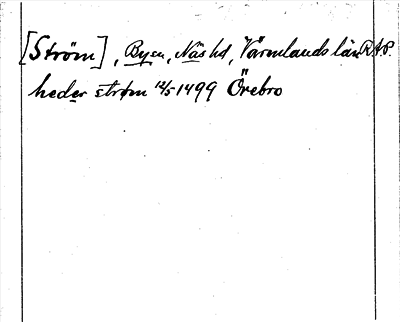 [Ström], Bysn, Näs hd, Värmlands län R.A.P.
heder strøm 12/5 1499 Örebro